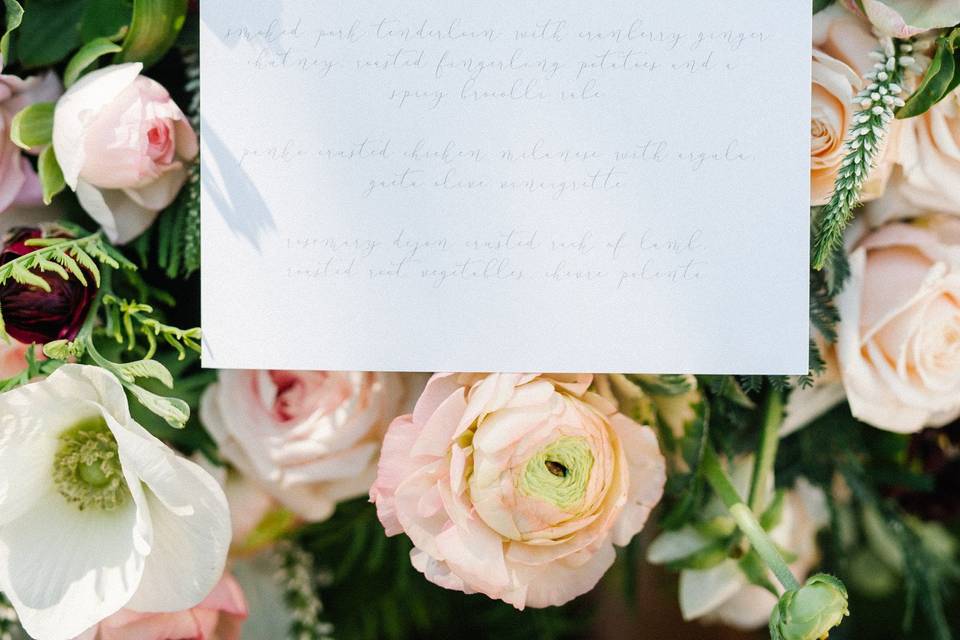 smoked pork tenderloin with cranberry ginger
chutney, roasted fingerling potatoes and a
spicy brocolli rabe
panko crusted chicken milanese with argula,
gaeta olive vinaigrette
rosemary dijon crusted rack of lamb
roasted root vegetables, chevre polenta